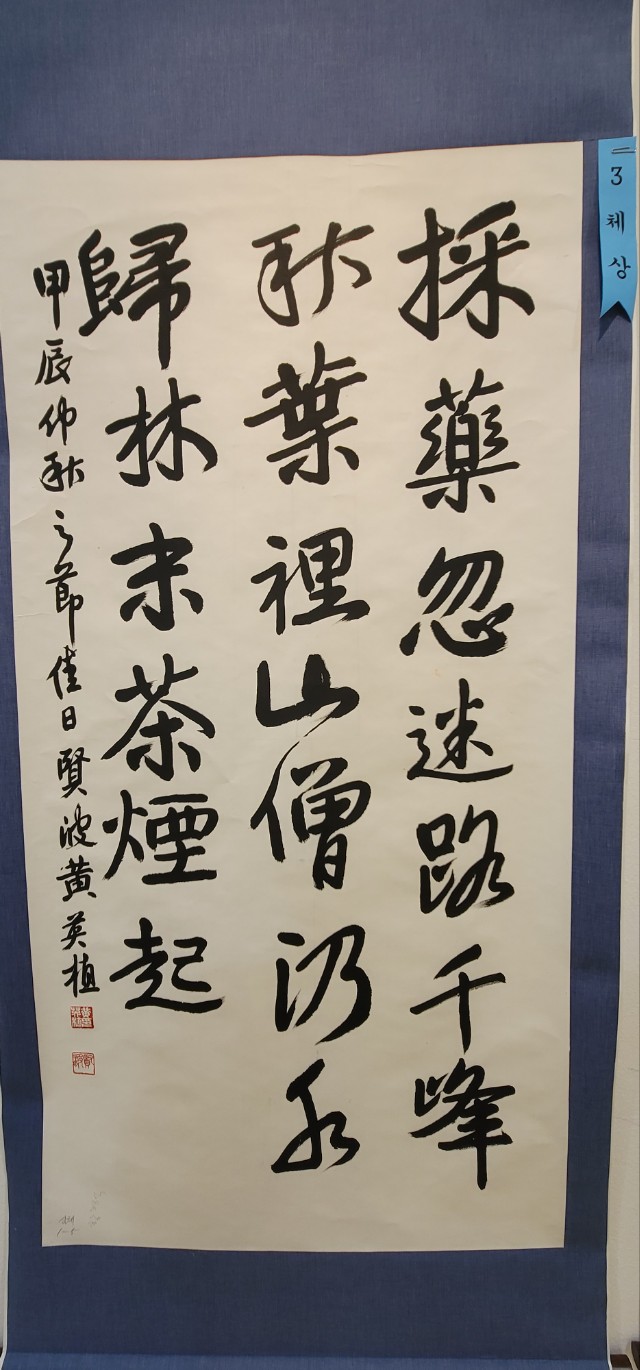 3체상
採藥忽迷路千峰
秋葉裡山僧汲水
歸林末茶煙起
甲辰仲秋之節佳日賢波黃英植